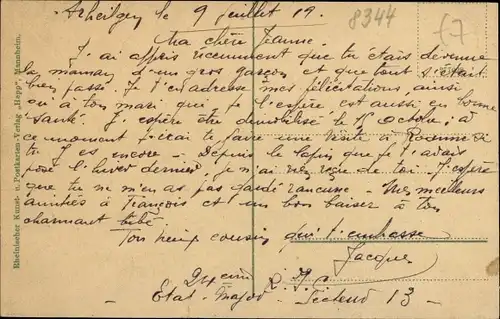 Arheilgen le 9 juillet 19.
8344
17
Ma chère Jeanne.
J'ai appris récemment que tu étais devenue
la maman d'un gros garçon et que tout s'était
bien passé. Je t'en adresse mes félicitations, ainsi
qu'à ton mari que je l'espère est aussi en bonne
santé. J'espère être démobilisé le 15 Octobre, à
ce moment j'irai te faire une visite à Roanne si
tu y es encore - Depuis le lapin que je t'avais
posé l'hiver dernier, je n'ai rien reçu de toi. J'espère
que tu ne m'en as pas gardé rancune - Mes meilleurs
amitiés à François et un bon baiser à ton
charmant bébé -
Ton vieux cousin qui t'embrasse
Jacques
24eme R. I.
Etat-Major - Secteur 13 -
Rheinischer Kunst- u. Postkarten-Verlag „Hepp“, Mannheim.